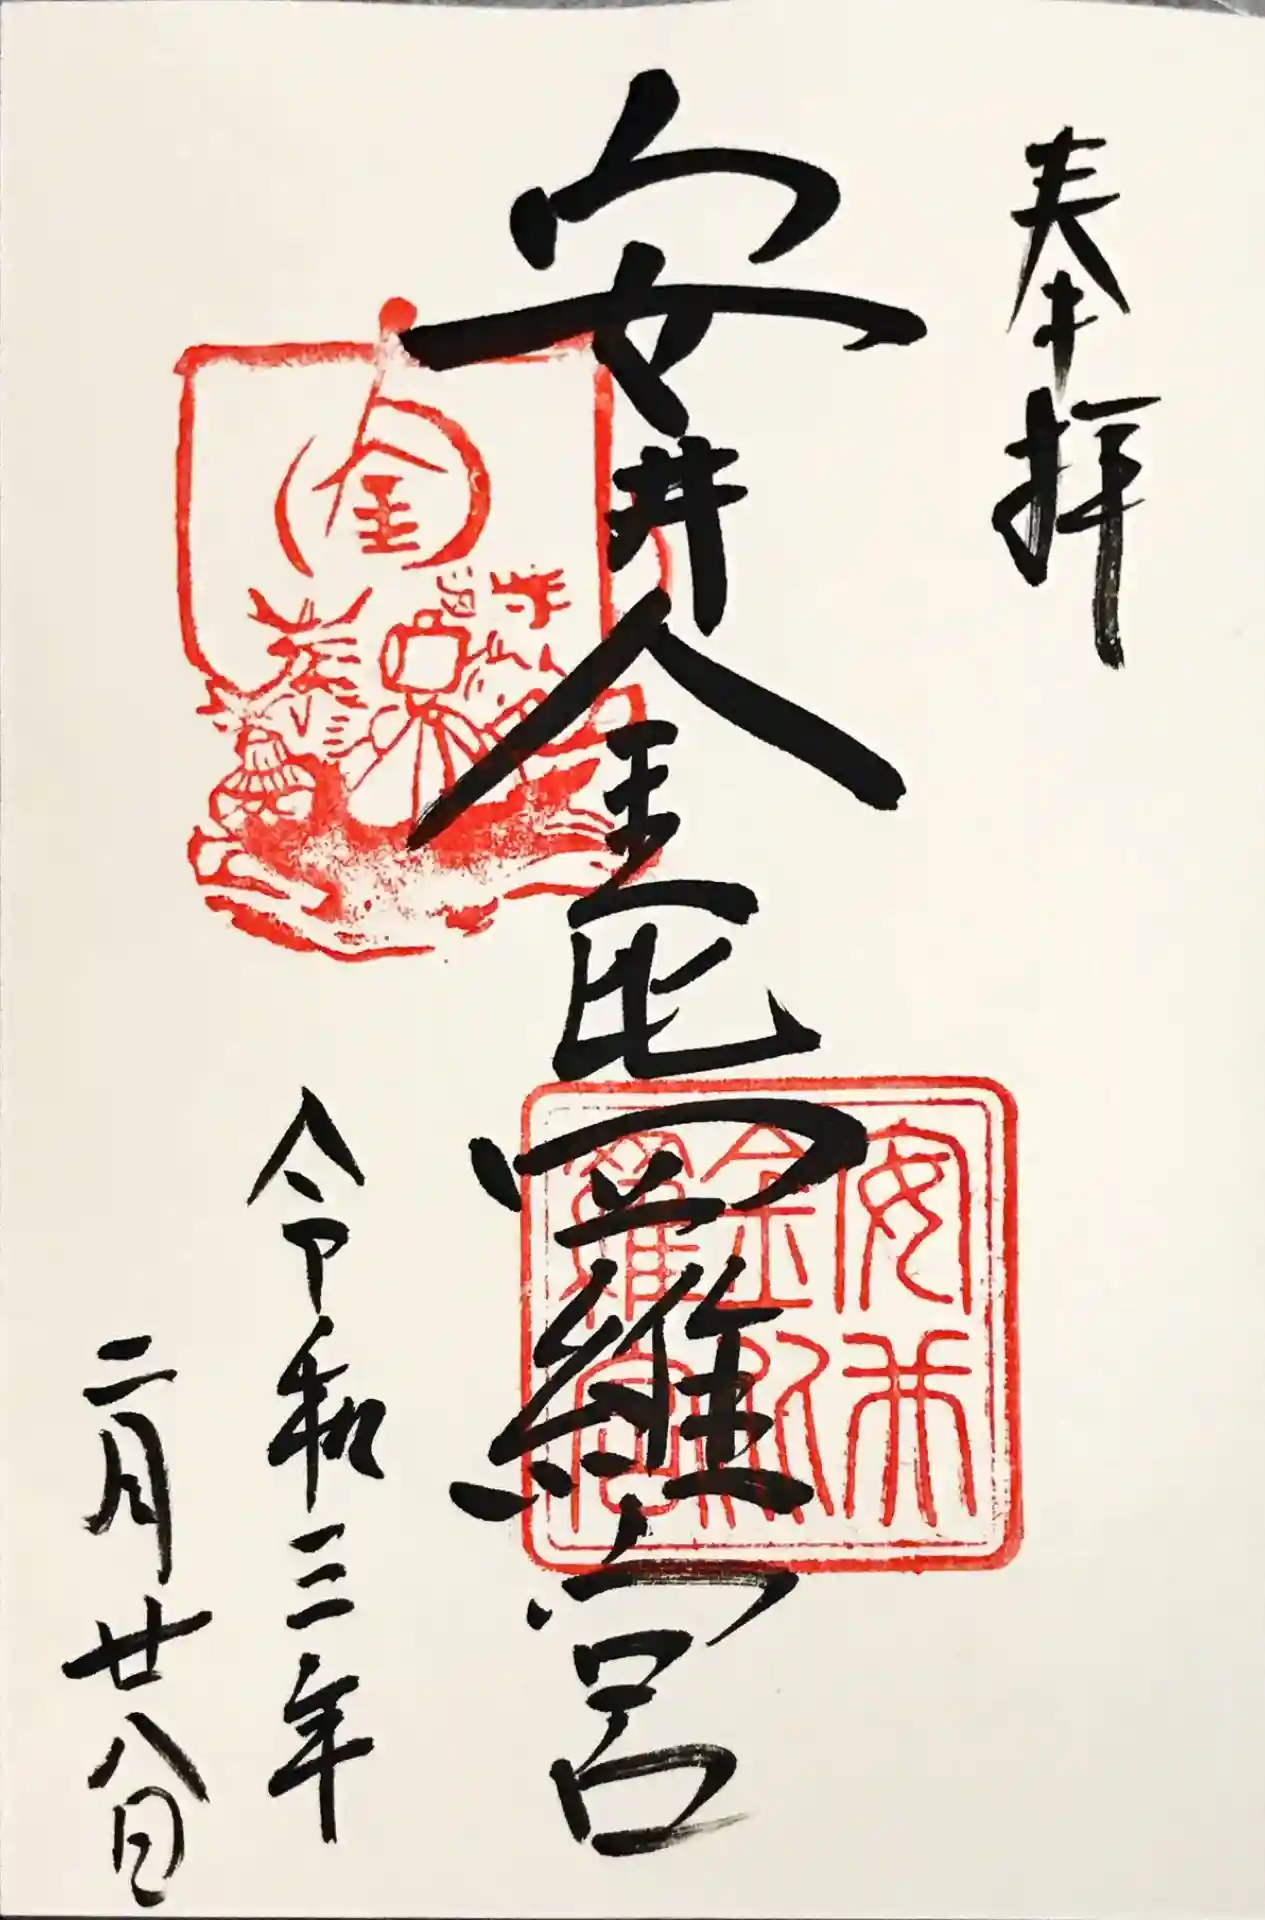 奉拝
安井金毘羅宮
令和三年
二月廿八日
金
安井
金比
羅宮